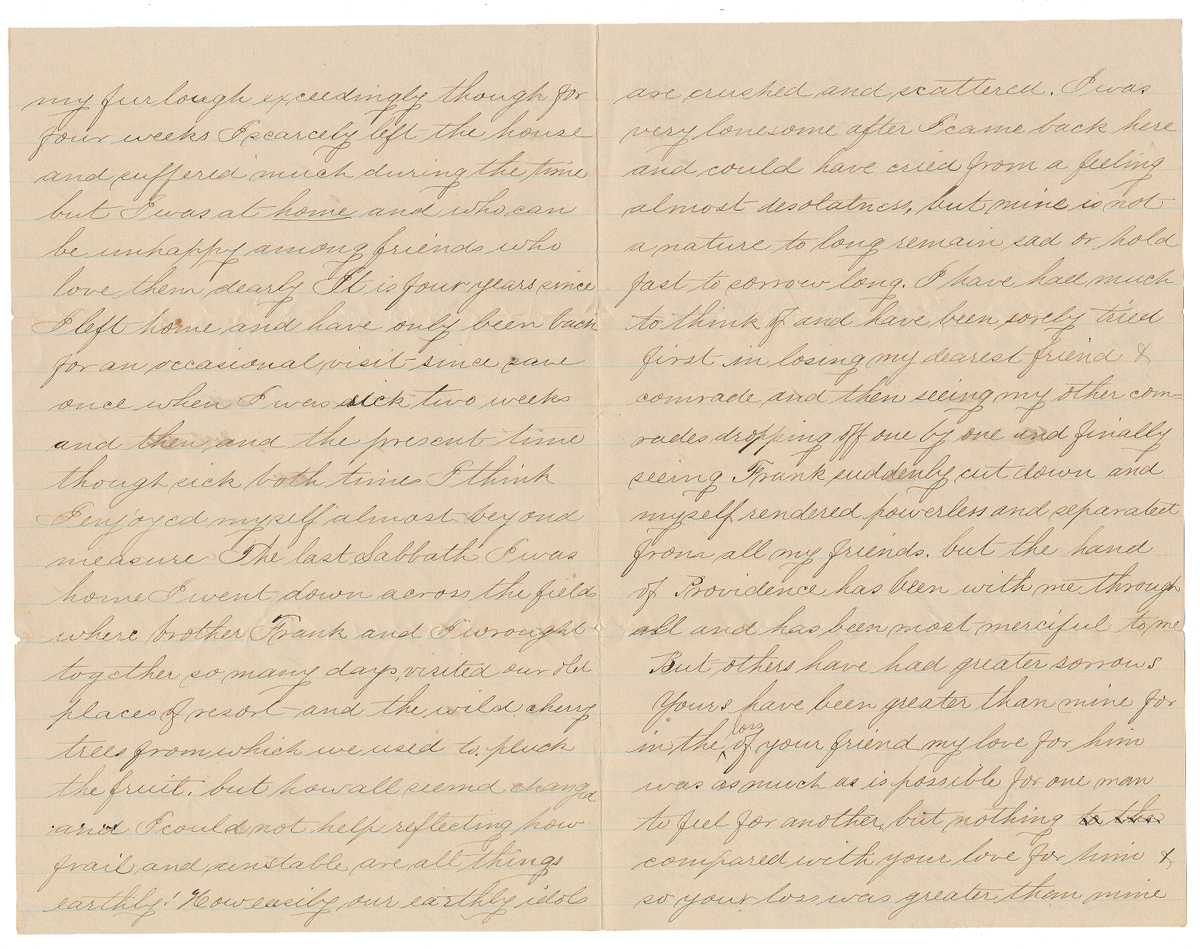 my furlough exceedingly though for
four weeks I scarcely left the house
and suffered much during the time
but I was at home and who can
be unhappy among friends who
love them dearly It is four years since
I left home and have only been back
for an occasional visit since save
once when I was sick two weeks
and then and the present time
though sick both times I think
I enjoyed myself almost beyond
measure The last Sabbath I was
home I went down across the field
where brother Frank and I wrought
together so many days, visited our old
places of resort and the wild chery
trees from which we used to pluck
the fruit. but how all seemd changed
and I could not help reflecting how
frail and unstable are all things
earthly! How easily our earthly idols
are crushed and scattered. I was
very lonesome after I came back here
and could have cried from a feeling
almost desolatness, but mine is not
a nature to long remain sad or hold
fast to sorrow long. I have had much
to think of and have been sorely tried
first in losing my dearest friend &
comrade and then seeing my other com=
rades dropping off one by one and finally
seeing Frank suddenly cut down and
myself rendered powerless and separated
from all my friends. but the hand
of Providence has been with me through
all and has been most merciful to me
But others have had greater sorrows
Yours have been greater than mine for
in the loss of your friend my love for him
was as much as is possible for one man
to feel for another, but nothing to the
compared with your love for him &
so your loss was greater than mine